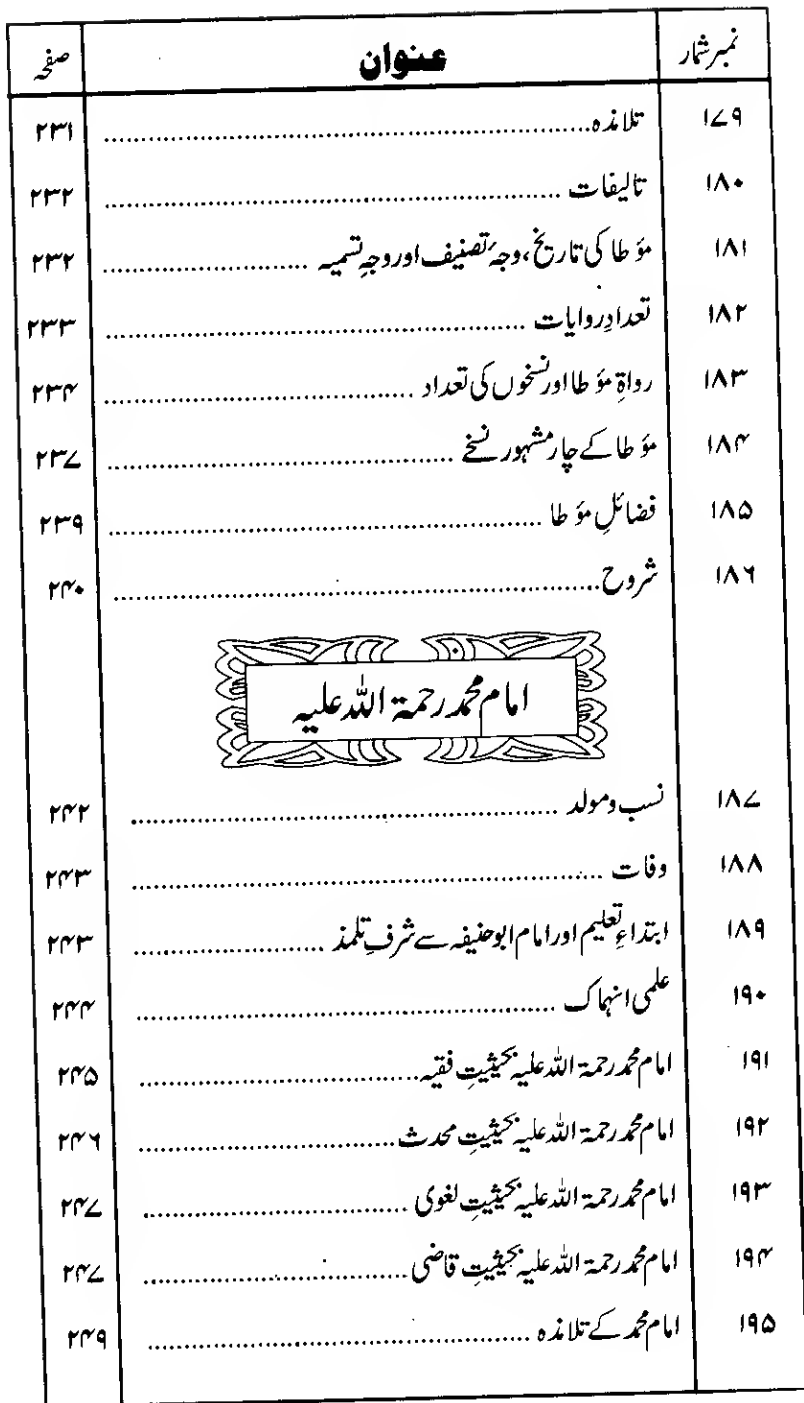 نمبرشمار عنوان صفحہ
۱۷۹ تلامذہ ۲۳۱
۱۸۰ تالیفات ۲۳۲
۱۸۱ مؤطا کی تاریخ، وجۂ تصنیف اور وجہِ تسمیہ ۲۳۲
۱۸۲ تعدادِ روایات ۲۳۳
۱۸۳ رواۃِ مؤطا اور نسخوں کی تعداد ۲۳۴
۱۸۴ مؤطا کے چار مشہور نسخے ۲۳۷
۱۸۵ فضائلِ مؤطا ۲۳۹
۱۸۶ شروح ۲۴۰
امام محمد رحمۃ اللہ علیہ
۱۸۷ نسب ومولد ۲۴۲
۱۸۸ وفات ۲۴۳
۱۸۹ ابتداءِ تعلیم اور امام ابوحنیفہ سے شرفِ تلمذ ۲۴۳
۱۹۰ علمی انہماک ۲۴۴
۱۹۱ امام محمد رحمۃ اللہ علیہ بحیثیتِ فقیہ ۲۴۵
۱۹۲ امام محمد رحمۃ اللہ علیہ بحیثیتِ محدث ۲۴۶
۱۹۳ امام محمد رحمۃ اللہ علیہ بحیثیتِ لغوی ۲۴۷
۱۹۴ امام محمد رحمۃ اللہ علیہ بحیثیتِ قاضی ۲۴۷
۱۹۵ امام محمد کے تلامذہ ۲۴۹